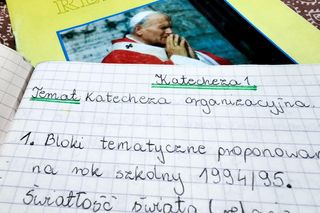 Katecheza 1
Temat Katecheza organizacyjna.
1. Bloki tematyczne proponowan
na rok szkolny 1994/95.
światłość świata